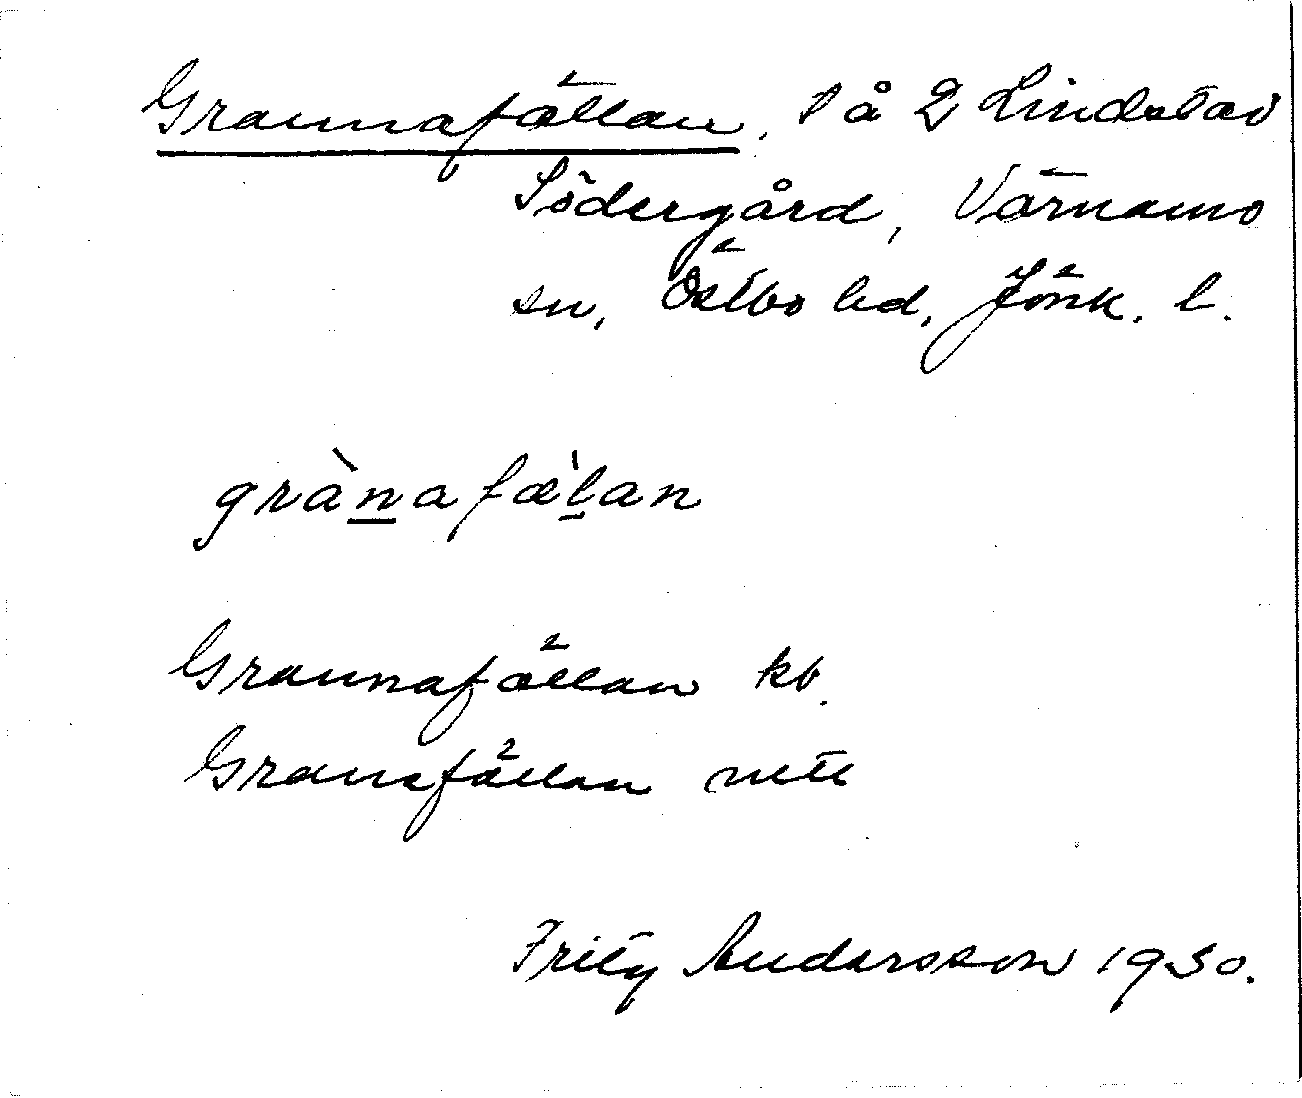 Grannafällan, l å 2 Lindstad
Södergård, Värnamo
sn, Östbo hd, Jönk. l.
grànafæ̀lan
Grannafällan kb.
Granafällan mtl
Fritz Andersson 1930.